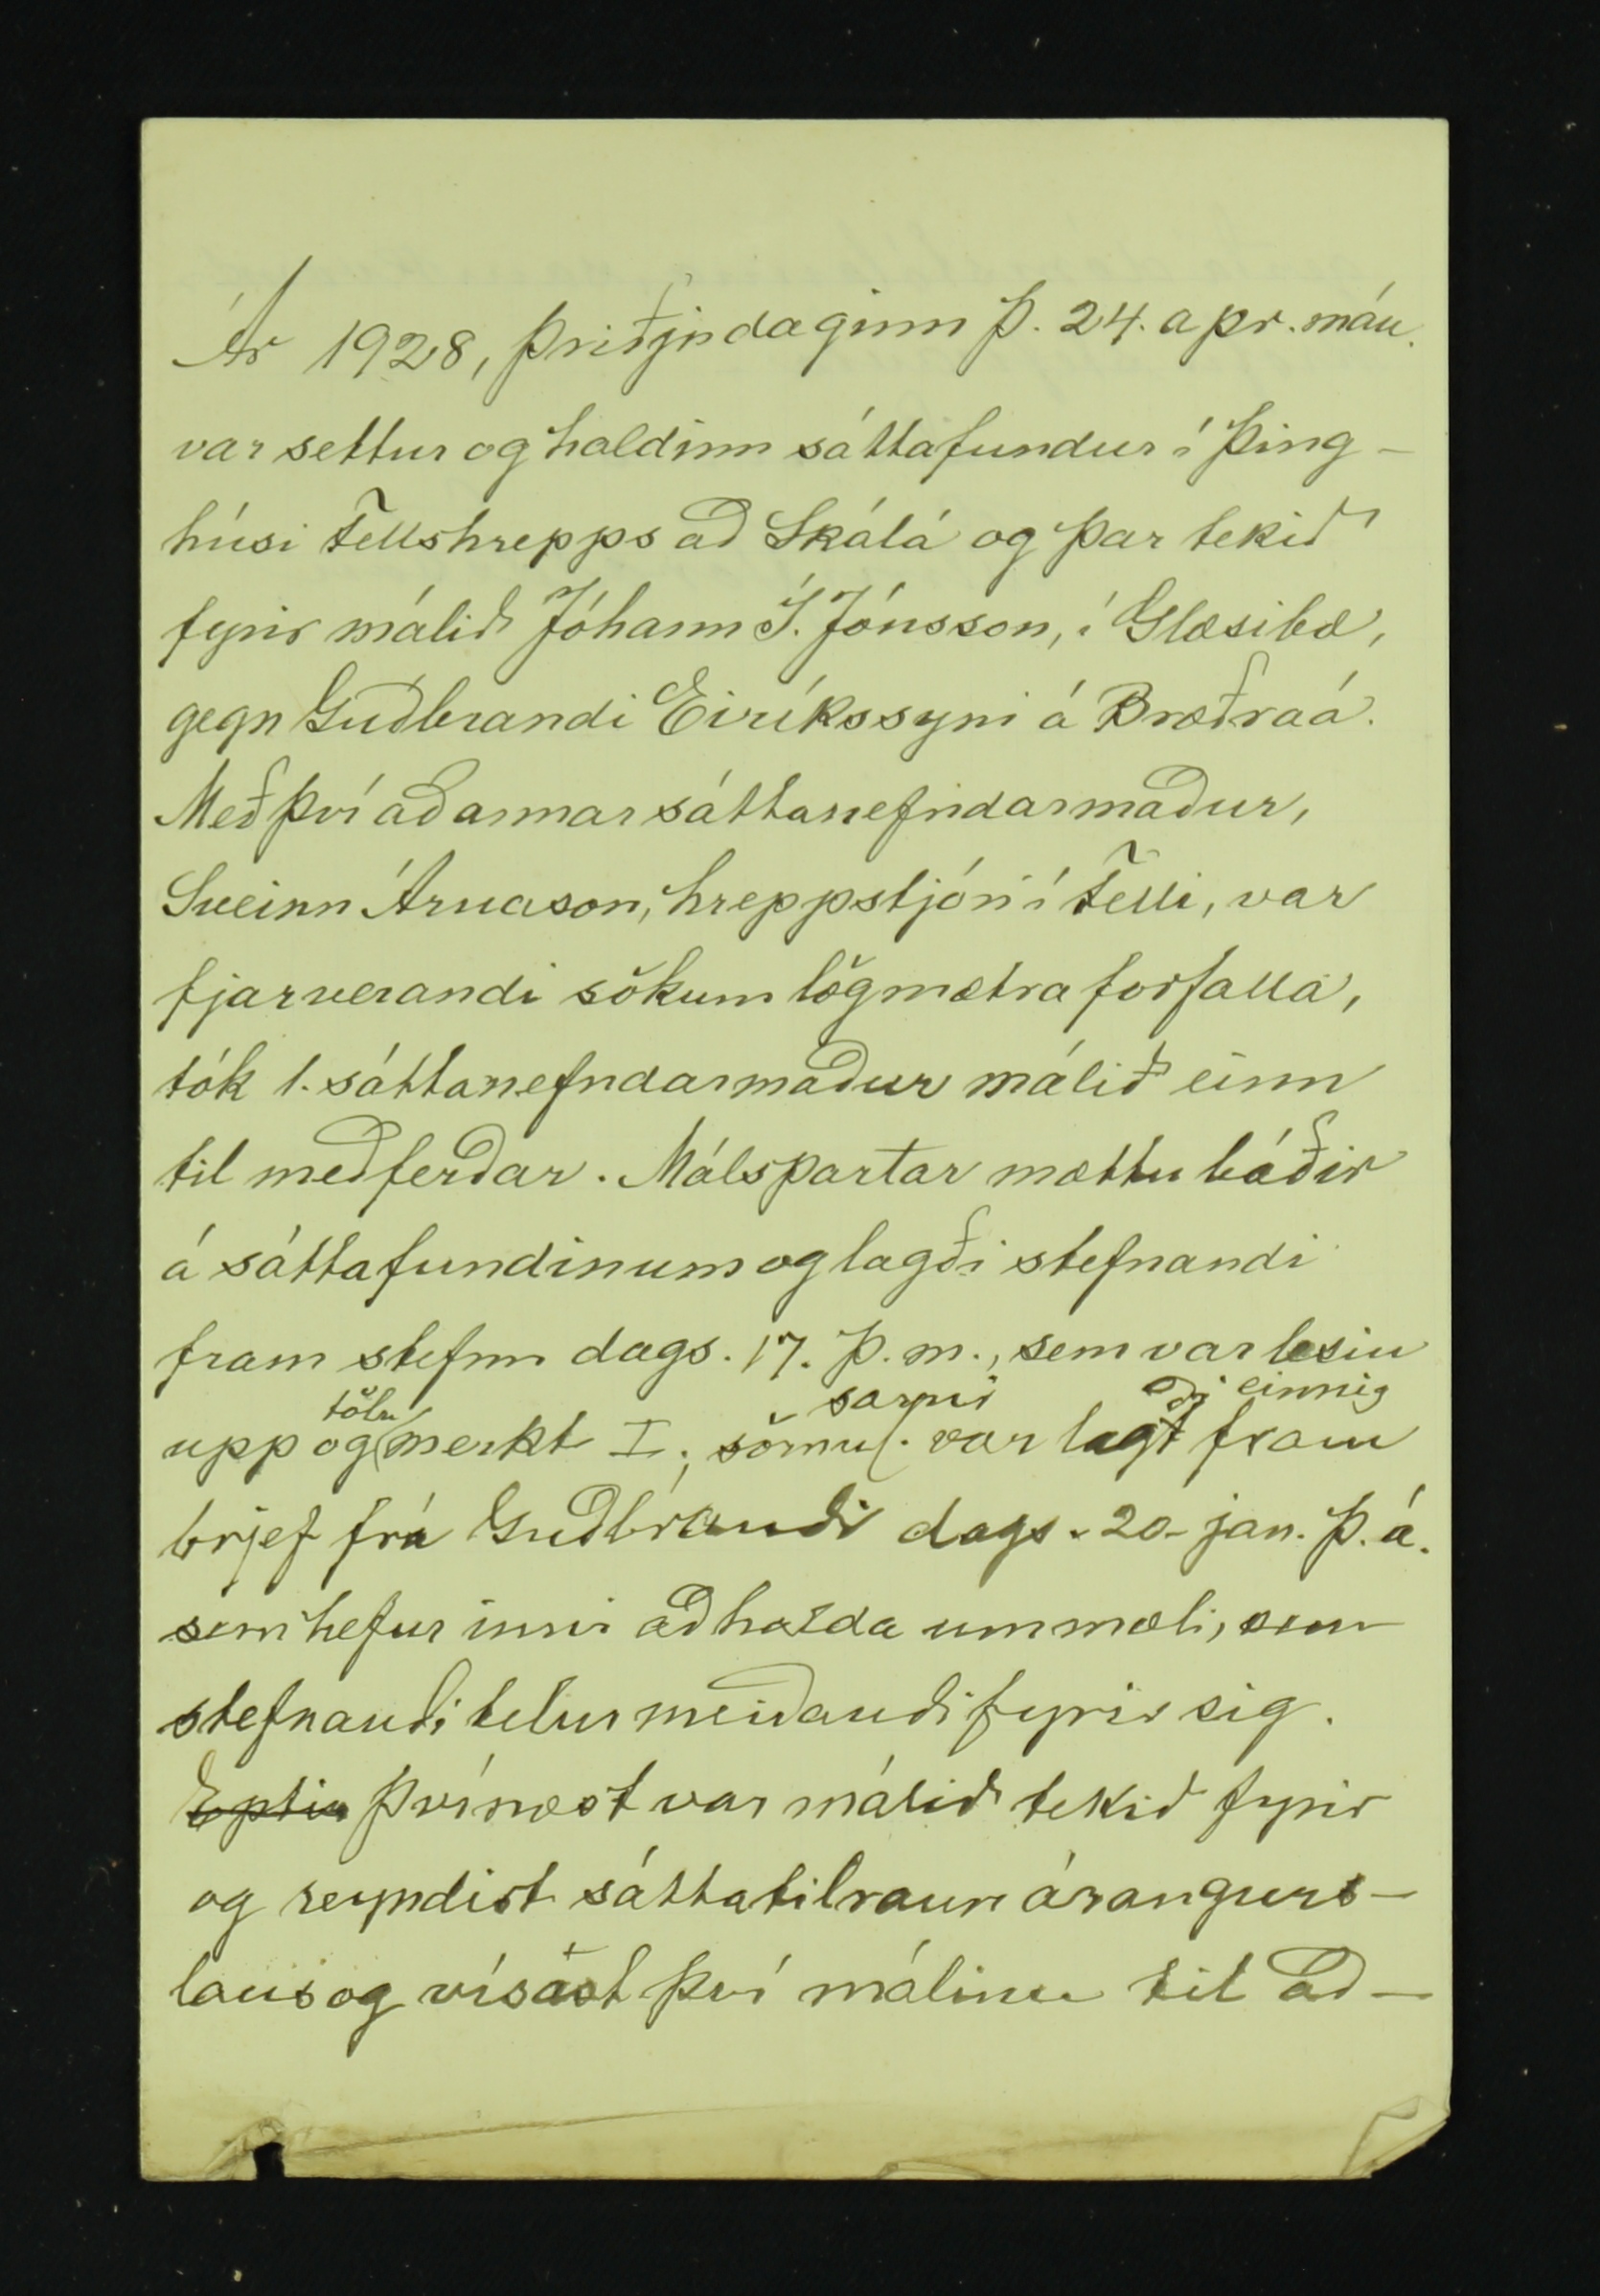 Ár 1928, þriðjudaginn þ. 24. apr. mán.
var settur og haldinn sáttafundur í Þing-
húsi Fellshrepps að Skálá og þar tekið
fyrir málið Jóhann Í. Jónsson, í Glæsibæ,
gegn Guðbrandi Eiríkssyni á Bræðraá.
Með því að annar sáttanefndarmaður,
Sveinn Árnason, hreppstjóri í Felli, var
fjarverandi sökum lögmætra forfalla,
tók 1. sáttanefndarmaður málið einn
til meðferðar. Málspartar mættu báðir
á sáttafundinum og lagði stefnandi
fram stefnu dags. 17. þ. m., sem var lesin
tölu sarnir ði einnig
upp og merkt I; sömul. var lagt fram
brjef frá Guðbrandi dags. 20. jan. þ. á.
sem hefur inni að halda ummæli, sem
stefnandi telur meiðandi fyrir sig.
Eptir Þvínæst var málið tekið fyrir
og reyndist sáttatilraun árangurs-
laus og vísast því málinu til að-